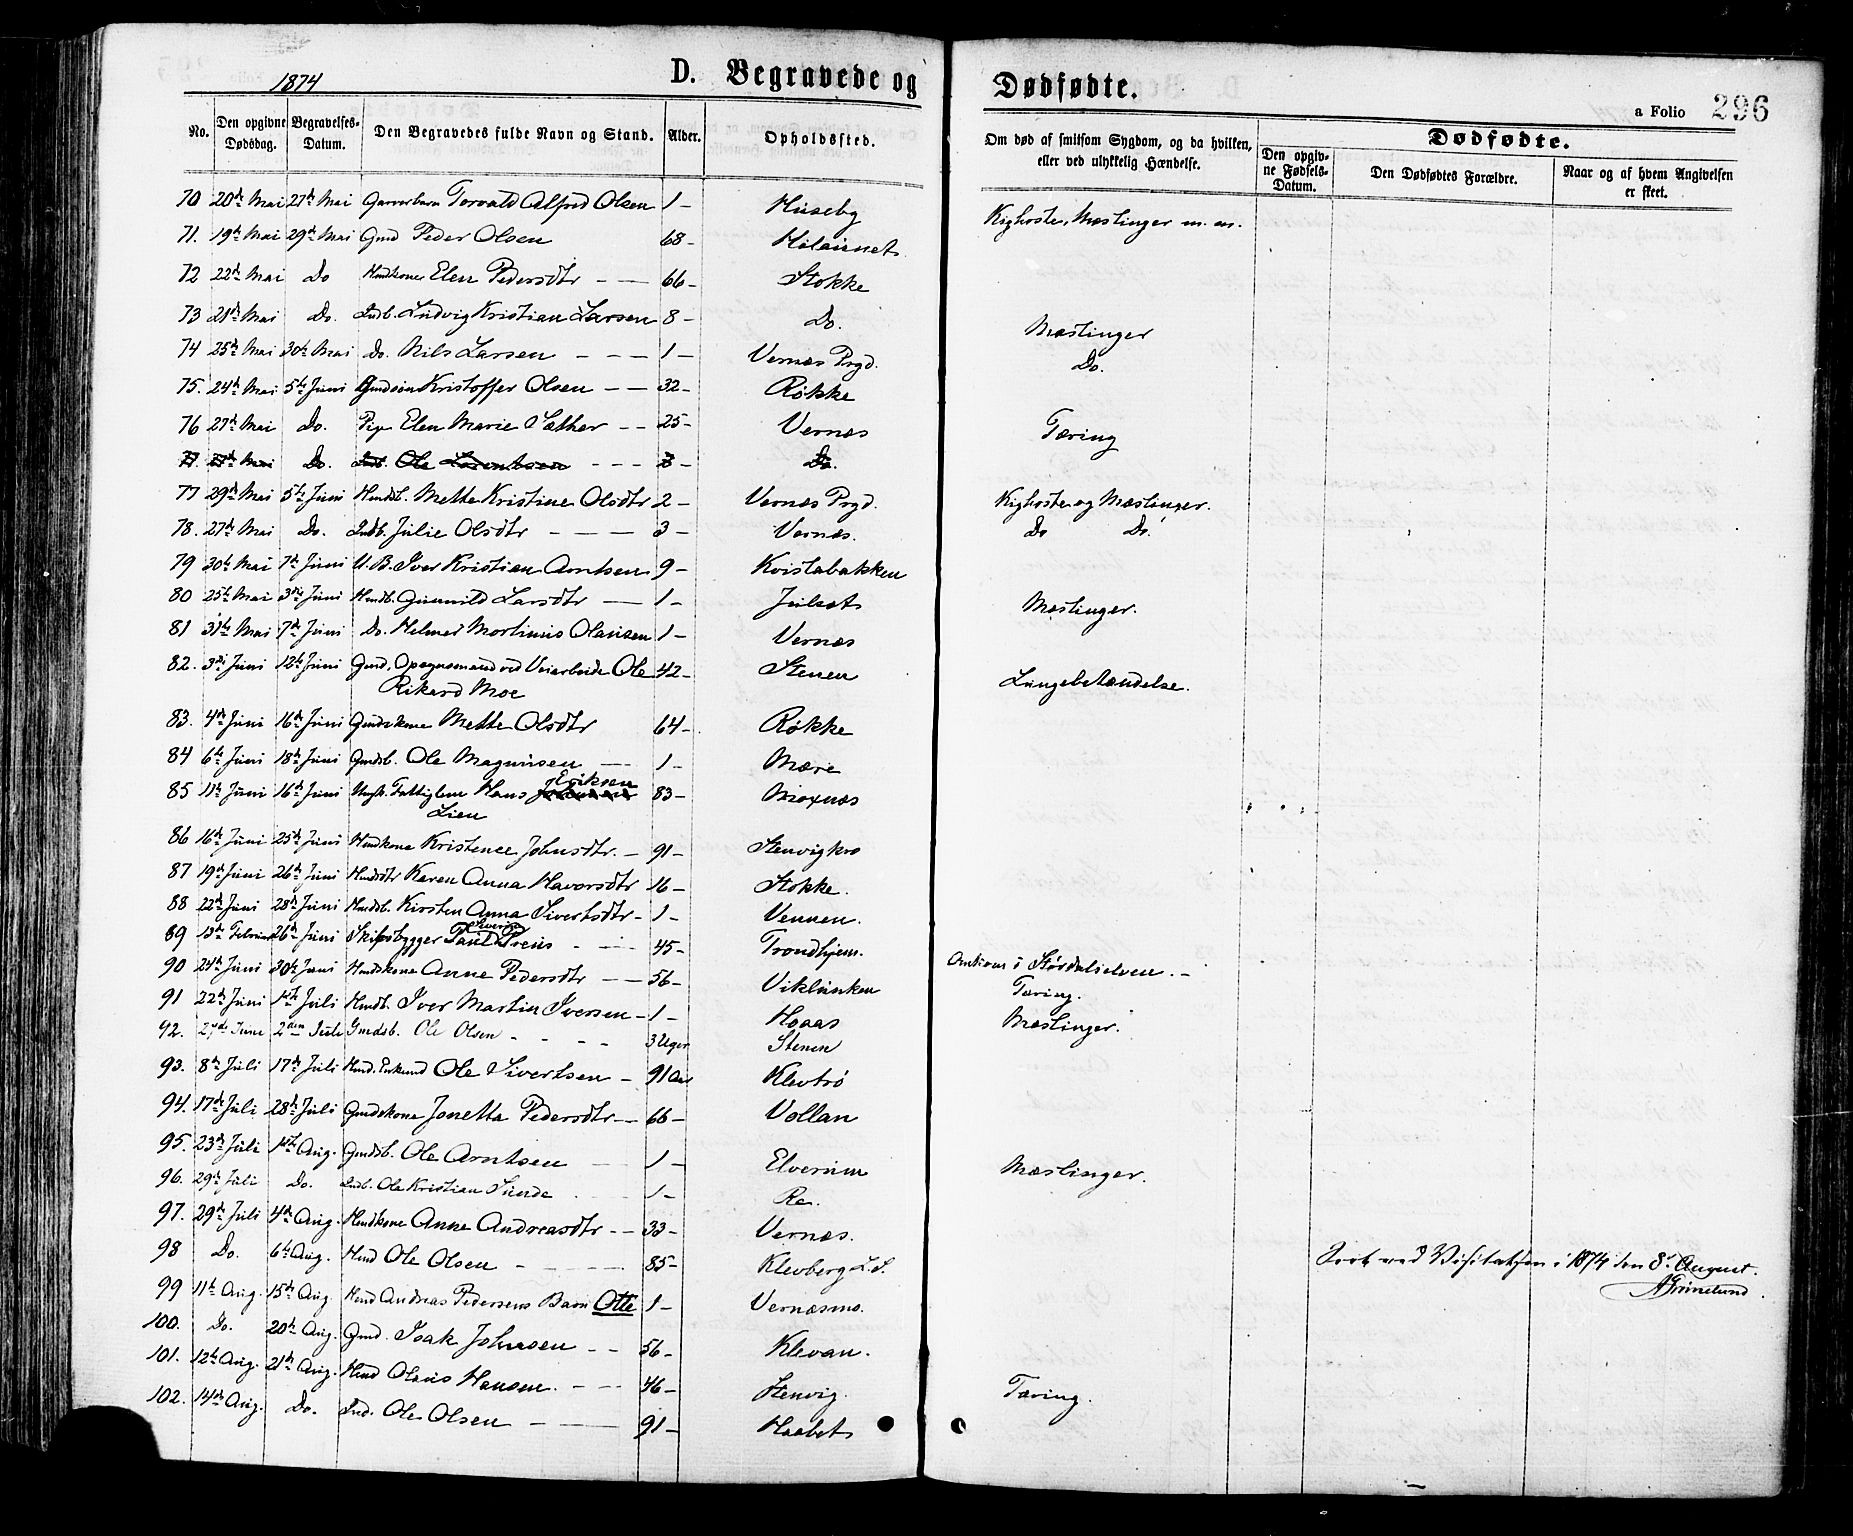 1874
D. Begravede og Dødfødte.
a Folio 296
No. Den opgivne Dødsdag. Begravelses-Datum. Den Begravedes fulde Navn og Stand. Alder. Opholdssted. Om død af smitsom Sygdom, og da hvilken, eller ved ulykkelig Hændelse. Dødfødte.
Den opgivne Fødsels-Datum. Den Dødfødtes Forældre. Naar og af hvem Angivelsen er skeet.
70 20de Mai 27de Mai Garverbarn Torvald Alfred Olsen 1 - Huseby Kighoste, Mæslinger m. m.
71. 19de Mai 29de Mai Gmd Peder Olsen 68 - Hilainnet
72 22de Mai Do Hmdkone Elen Pedersdtr - - 66 - Stokke
73 21de Mai Do. Indb. Ludvig Kristian Larsen 8 - Do. Mæslinger
74 25de Mai 30te Mai Do. Nils Larsen - - - 1 - Vernæs Prgd. Do.
75. 24de Mai 5te Juni Gmdsøn Kristoffer Olsen - - 32 - Røkke
76 27de Mai Do. Pige Elen Marie Sæther - - 25 - Vernæs Tæring
77. 27de Mai Do. Indb. Ole Lorentsen - - - 3 - Do.
77 29de Mai 5te Juni Hmdsb. Mette Kristine Olsdtr 2 - Vernæs Prgd. Kighoste og Mæslinger.
78. 27de Mai Do. Indb. Julie Olsdtr - - - 3 - Vernæs. Do Do.
79 30te Mai 7de Juni U. B. Iver Kristian Arntsen 9 - Kvistabakken
80 25de Mai 3die Juni Hmdb. Gunnild Larsdtr - 1 - Julset Mæslinger.
81 31te Mai 7de Juni Do. Helmer Martinus Olausen 1 - Vernæs
82. 3die Juni 12te Juni Gmd. Opsynsmand ved Veiarbeide Ole 42 - Stenen Lungebetændelse.
Rikard Moe
83. 4de Juni 16de Juni Gmdskone Mette Olsdtr 64 - Røkke
84 6te Juni 18de Juni Gmdsb. Ole Magnusen - 1 - Mære
85 11te Juni 16de Juni Ungk. Fattiglem Hans Eriksen 83 - Moxnæs
Lien
86 16de Juni 25de Juni Hmdkone Kristence Johnsdtr. - 91 - Stenvigkro
87 19de Juni 26de Juni Hmdsdtr Karen Anna Havorsdtr 16 - Stokke.
88 22de Juni 28de Juni Hmdsb. Kirsten Anna Sivertsdtr - 1 - Vennen.
89 13de Februar 26de Juni Skibsbygger Paul Severin Preus - - 45 - Trondhjem. Omkom i Stördalselven. -
90 24de Juni 30te Juni Hmdskone Anne Pedersdtr - - 56 - Viklunken Tæring.
91 22de Juni 1ste Juli Hmdb. Iver Martin Iversen - 1 - Hoaas Mæslinger.
92. 27de June 2den Juli Gmdsb. Ole Olsen - - - - 3 Uger Stenen
93. 8de Juli 17de Juli Hmd. Enkemd Ole Sivertsen - 91 Aar Klevtrö
94. 17de Juli 28de Juli Gmdskone Jonetta Pedersdtr - - 66 - Vollan
95. 23de Juli 1ste Aug. Gmdsb. Ole Arntsen - 1 - Elverum Mæslinger.
96. 29de Juli Do. Indb. Ole Kristian Sunde - - 1 - Re.
97. 29de Juli 4de Aug. Hmdkone Anne Andreasdtr - - 33 - Vernæs.
98 Do. 6te Aug. Hmd Ole Olsen - - - - 85 - Klevberg L.S. Seet ved Visitatsen i 1874 den 8de August.
AGrimelund
99 11te Aug. 15de Aug. Hmd Andreas Pedersens Barn Otte 1 - Vernæsmo.
100. Do. 20de Aug. Gmd. Isak Johnsen - - 56 - Klevan.
101. 12te Aug. 21de Aug. Hmd Olaus Hansen. - - - 46 - Stenvig. Tæring.
102. 14de Aug. Do. Ind. Ole Olsen - - 91 - Haabet